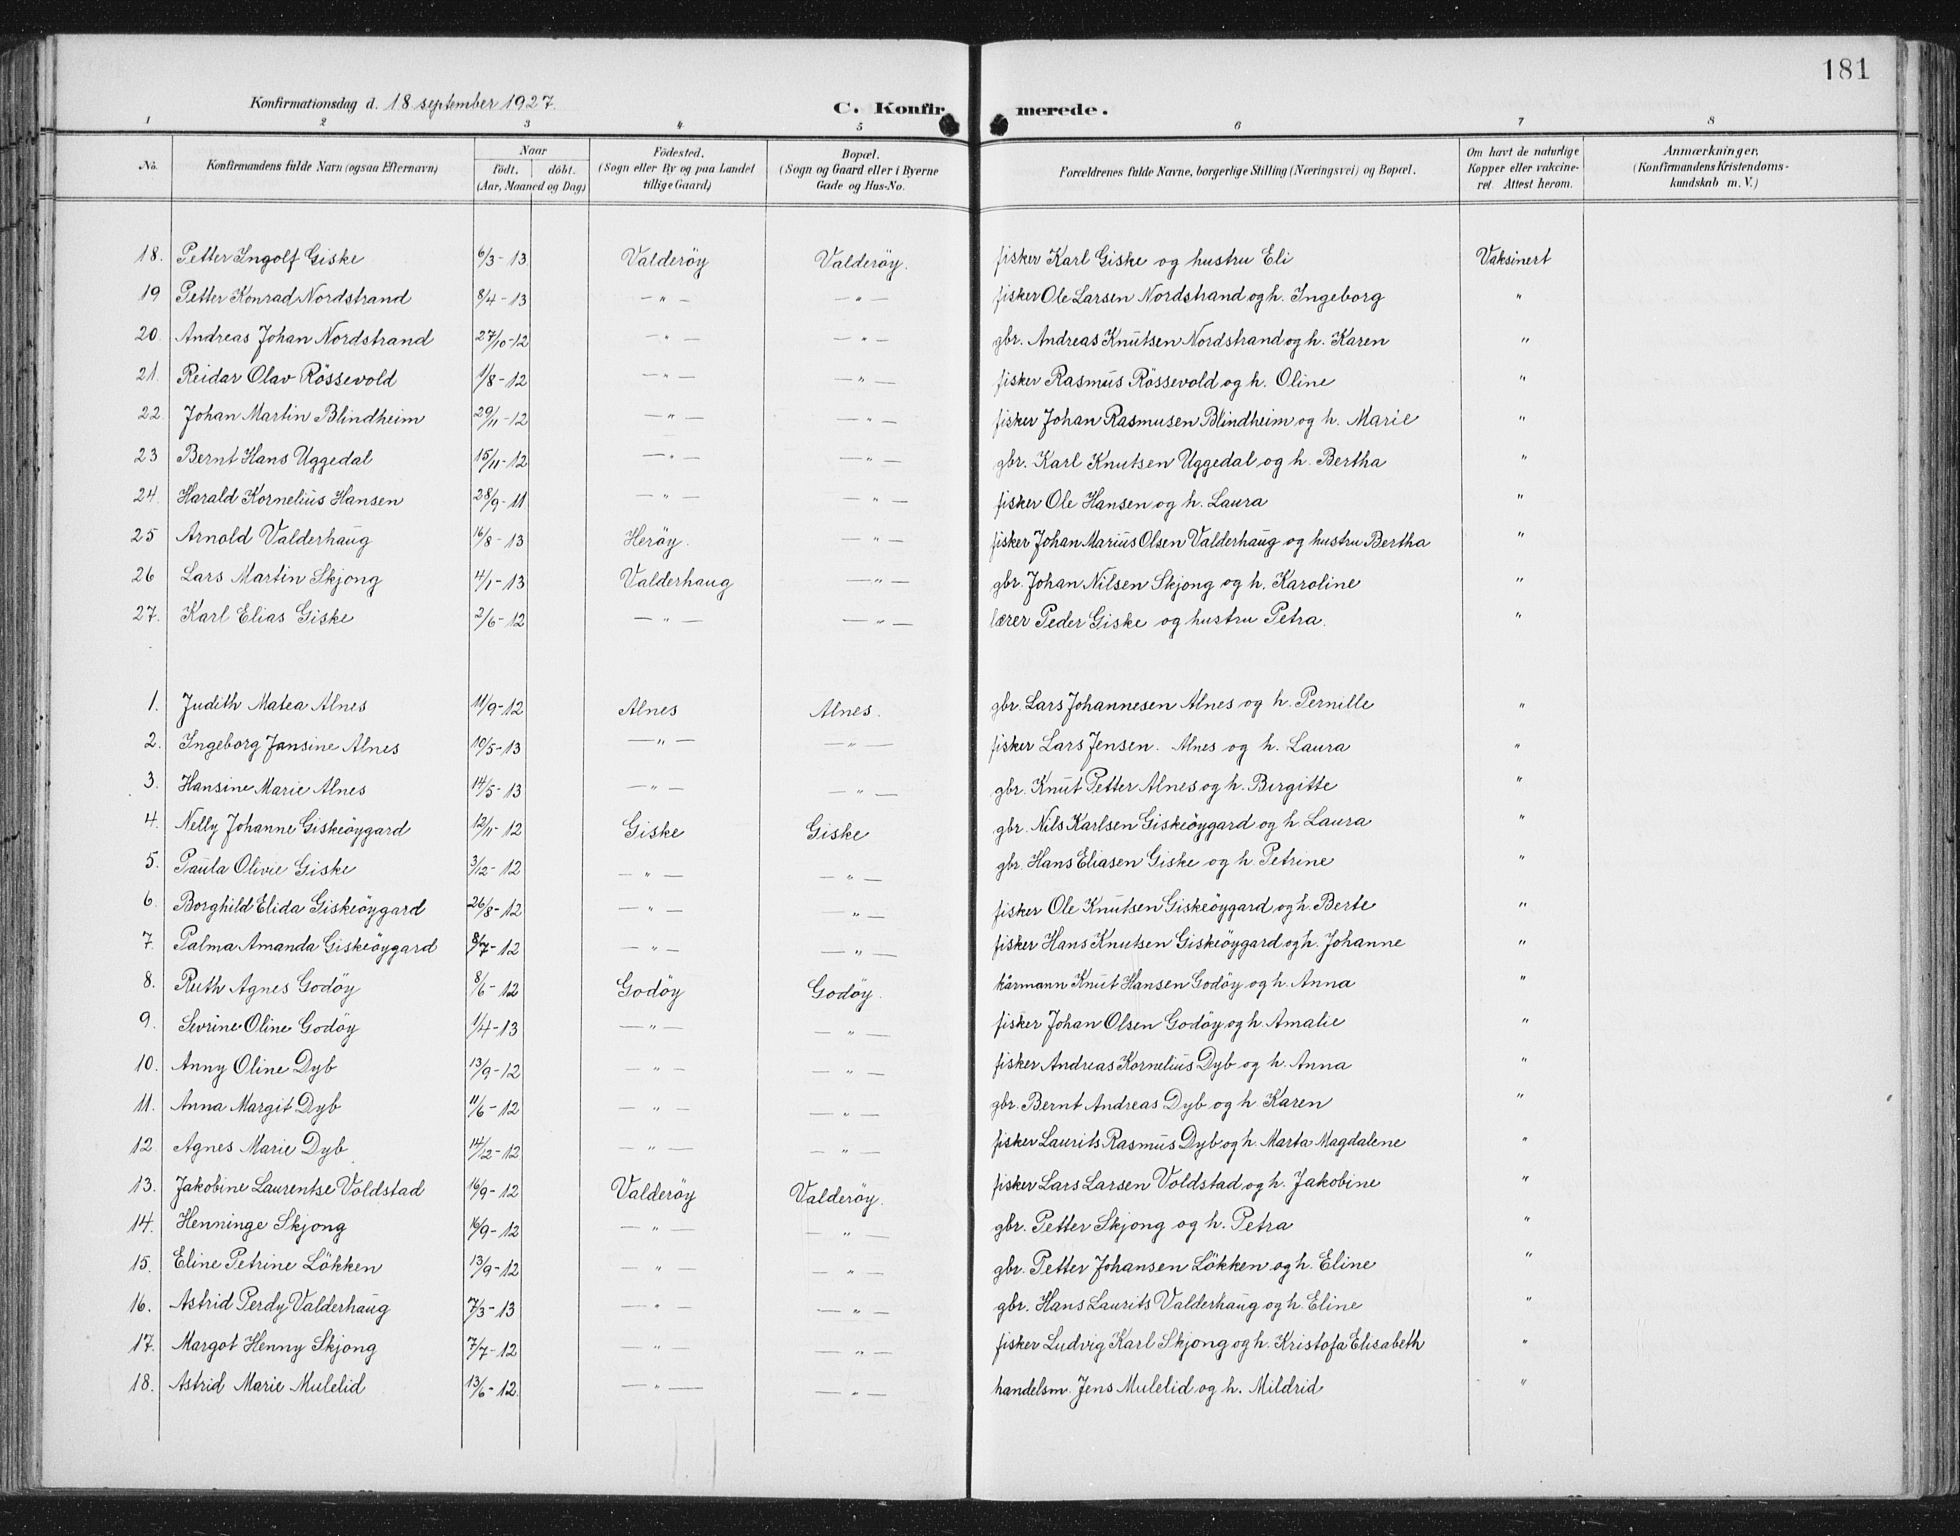 181
Konfirmationsdag d. 18 september 1927. C. Konfirmerede.
1 2 3 4 5 6 7 8
No. Konfirmandens fulde Navn (ogsaa Efternavn) Naar født. døbt. (Aar, Maaned og Dag) Fødested. (Sogn eller By og paa Landet tillige Gaard) Bopæl. (Sogn og Gaard eller i Byerne Gade og Hus-No. Forældrenes fulde Navne, borgerlige Stilling (Næringsvei) og Bopæl. Om havt de naturlige Kopper eller vakcineret. Attest herom. Anmærkninger. (Konfirmandens Kristendomskundskab m. V.)
18. Petter Ingolf Giske 6/3-13 Valderöy Valderöy. fisker Karl Giske og hustru Eli Vaksinert
19 Petter Konrad Nordstrand 8/4-13 —"— —"— fisker Ole Larsen Nordstrand og h. Ingeborg "
20 Andreas Johan Nordstrand 27/10-12 —"— —"— gbr. Andreas Knutsen Nordstrand og h. Karen "
21. Reidar Olav Rössevold 1/8-12 —"— —"— fisker Rasmus Rössevold og h. Oline "
22 Johan Martin Blindheim 29/11-12 —"— —"— fisker Johan Rasmusen Blindheim og h. Marie "
23 Bernt Hans Uggedal 15/11-12 —"— —"— gbr. Karl Knutsen Uggedal og h. Bertha "
24. Harald Kornelius Hansen 28/9-11 —"— —"— fisker Ole Hansen og h. Laura "
25 Arnold Valderhaug 16/8-13 Heröy. —"— fisker Johan Marius Olsen Valderhaug og hustru Bertha "
26 Lars Martin Skjong 4/1-13 Valderhaug —"— gbr. Johan Nilsen Skjong og h. Karoline "
27. Karl Elias Giske 2/6-12 —"— —"— lærer Peder Giske og hustru Petra. "
1. Judith Matea Alnes 11/9-12 Alnes Alnes. gbr. Lars Johannesen Alnes og h. Pernille "
2. Ingeborg Jansine Alnes 10/5-13 —"— —"— fisker Lars Jensen. Alnes og h. Laura "
3. Hansine Marie Alnes 14/5-13 —"— —"— gbr. Knut Petter Alnes og h. Birgitte "
4. Nelly Johanne Giskeöygard 12/11-12 Giske Giske gbr. Nils Karlsen Giskeöygard og h. Laura "
5. Paula Olivie Giske 3/12-12 —"— —"— gbr. Hans Eliasen Giske og h. Petrine "
6. Borghild Elida Giskeöygard 26/8-12 —"— —"— fisker Ole Knutsen Giskeöygard og h. Berte "
7. Palma Amanda Giskeöygard 8/7-12 —"— —"— fisker Hans Knutsen Giskeöygard og h. Johanne "
8. Ruth Agnes Godöy 8/6-12 Godöy Godöy. kårmann Knut Hansen Godöy og h. Anna "
9. Sevrine Oline Godöy 1/4-13 —"— —"— fisker Johan Olsen Godöy og h. Amalie "
10. Anny Oline Dyb 13/9-12 —"— —"— fisker Andreas Kornelius Dyb og h. Anna "
11. Anna Margit Dyb 11/6-12 —"— —"— gbr. Bernt Andreas Dyb og h. Karen "
12 Agnes Marie Dyb 14/12-12 —"— —"— fisker Laurits Rasmus Dyb og h. Marta Magdalene "
13. Jakobine Laurentse Voldstad 16/9-12 Valderöy Valderöy. fisker Lars Larsen Voldstad og h. Jakobine "
14. Henninge Skjong 16/9-12 —"— —"— gbr. Petter Skjong og h. Petra "
15. Eline Petrine Lökken 13/9-12 —"— —"— gbr. Petter Johansen Lökken og h. Eline "
16. Astrid Perdy Valderhaug 7/3-13 —"— —"— gbr. Hans Laurits Valderhaug og h. Eline "
17. Margot Henny Skjong 7/7-12 —"— —"— fisker Ludvig Karl Skjong og h. Kristofa Elisabeth "
18. Astrid Marie Mulelid 13/6-12. —"— —"— handelsm. Jens Mulelid og h. Mildrid "